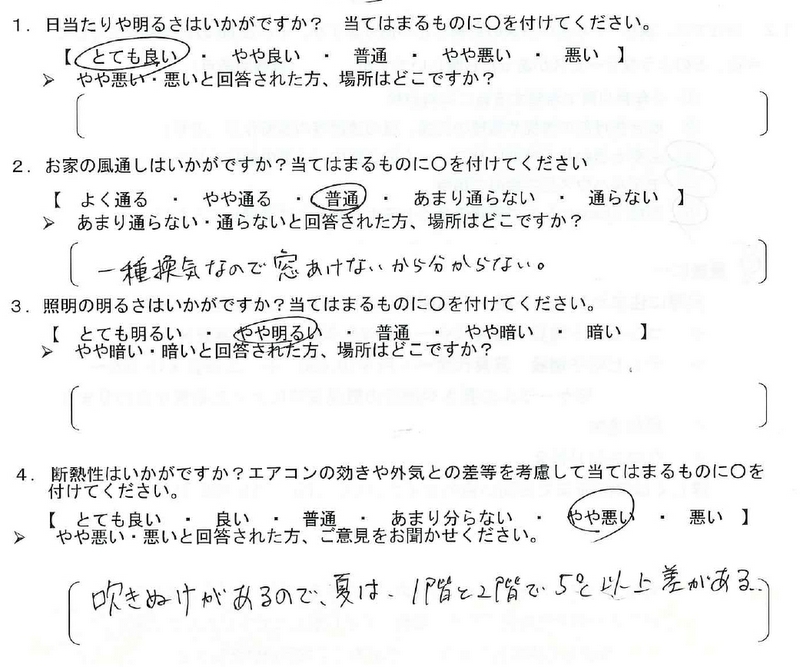 １．日当たりや明るさはいかがですか？　当てはまるものに〇を付けてください。
【　とても良い　・　やや良い　・　普通　・　やや悪い　・　悪い　】
➢　やや悪い・悪いと回答された方、場所はどこですか？
２．お家の風通しはいかがですか？当てはまるものに〇を付けてください
【　よく通る　・　やや通る　・　普通　・　あまり通らない　・　通らない　】
➢　あまり通らない・通らないと回答された方、場所はどこですか？
一種換気なので窓あけないから分からない。
３．照明の明るさはいかがですか？当てはまるものに〇を付けてください。
【　とても明るい　・　やや明るい　・　普通　・　やや暗い　・　暗い　】
➢　やや暗い・暗いと回答された方、場所はどこですか？
４．断熱性はいかがですか？エアコンの効きや外気との差等を考慮して当てはまるものに〇を
付けてください。
【　とても良い　・　良い　・　普通　・　あまり分らない　・　やや悪い　・　悪い　】
➢　やや悪い・悪いと回答された方、ご意見をお聞かせください。
吹きぬけがあるので、夏は、1階と2階で5℃以上差がある。